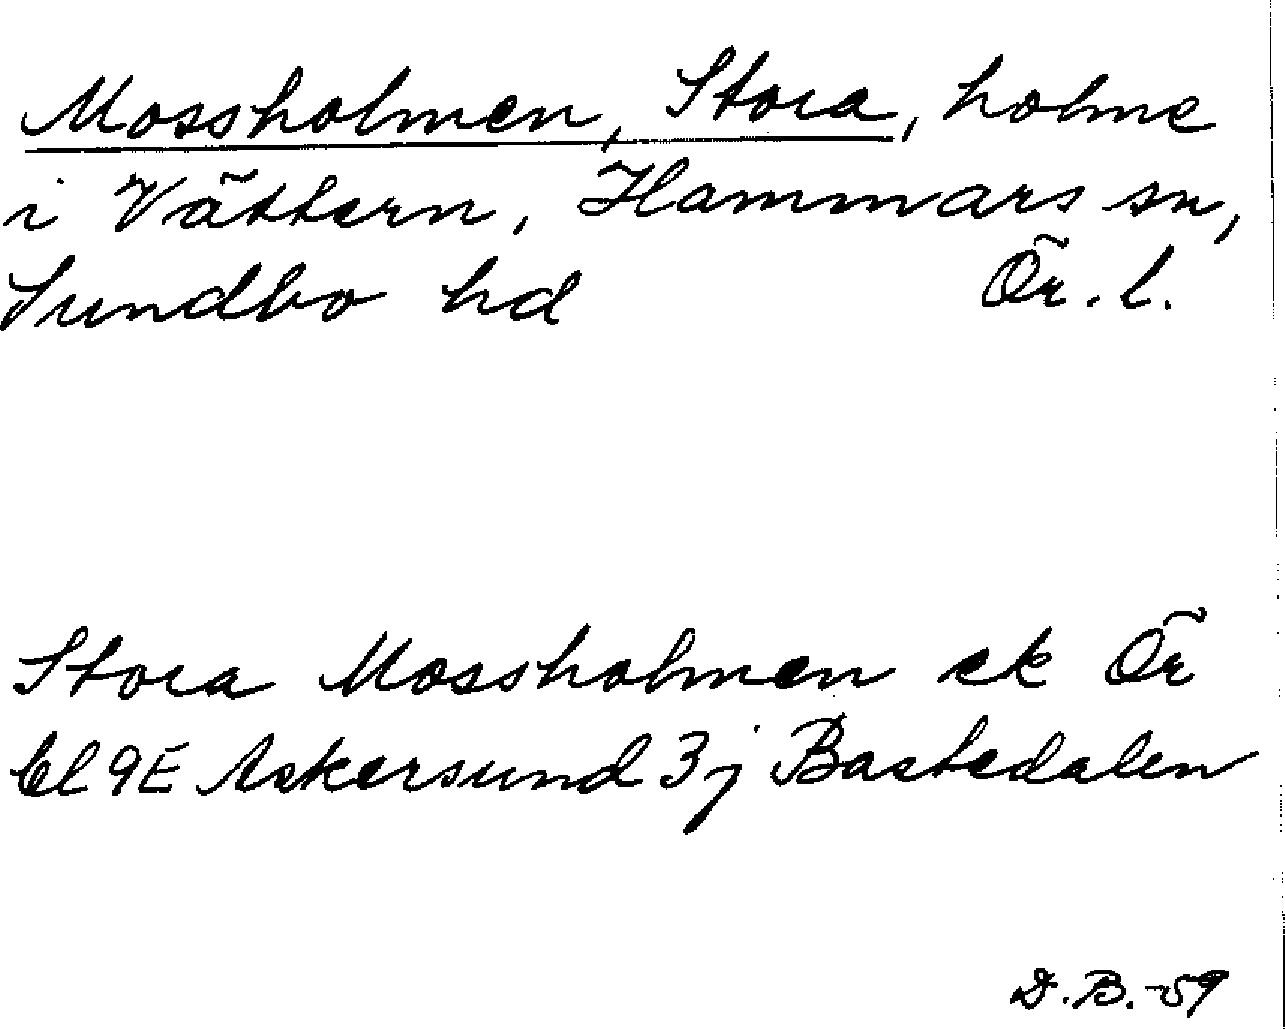 Mossholmen, Stora, holme
i Vättern, Hammars sn,
Sundbo hd Ör. l.
Stora Mossholmen ek Ör
bl 9E Askersund 3j Bastedalen
D.B.-59